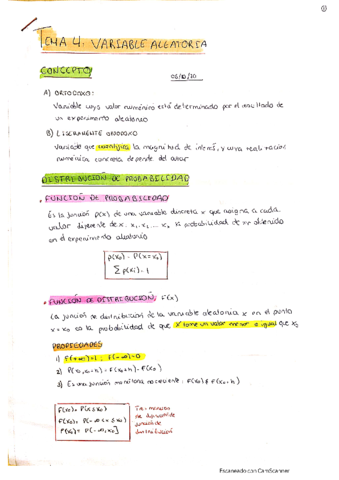 TEMA 4. VARIABLE ALEATORIA
CONCEPTO
06/10/20
A) ORTODOXO:
Variable cuyo valor numérico está determinado por el resultado de
un experimento aleatorio
B) LIGERAMENTE ORTODOXO
Variable que la magnitud de interés, y cuya realización
numérica concreta depende del azar
DISTRIBUCIÓN DE PROBABILIDAD
. FUNCIÓN DE PROBABILIDAD
Es la función p(x) de una variable discreta x que asigna a cada
valor diferente de x, x₁, x₂, ... xₖ la probabilidad de ser obtenido
en el experimento aleatorio
p(x₀) = P(x = x₀)
∑ p(xᵢ) = 1
. FUNCIÓN DE DISTRIBUCIÓN, F(x)
La función de distribución de la variable aleatoria x en el punto
x = x₀ es la probabilidad de que x tome un valor menor o igual que x₀
PROPIEDADES
1) F(+∞) = 1 ; F(-∞) = 0
2)
3) Es una función monótona no creciente: F(x₀) ≤ F(x₀+h)
F(x₀) = P(x ≤ x₀)
F(x₀) = P(-∞ < x ≤ x₀)
F(x₀) = P(-∞, x₀]
Tres maneras
de
función de
distribución
Escaneado con CamScanner